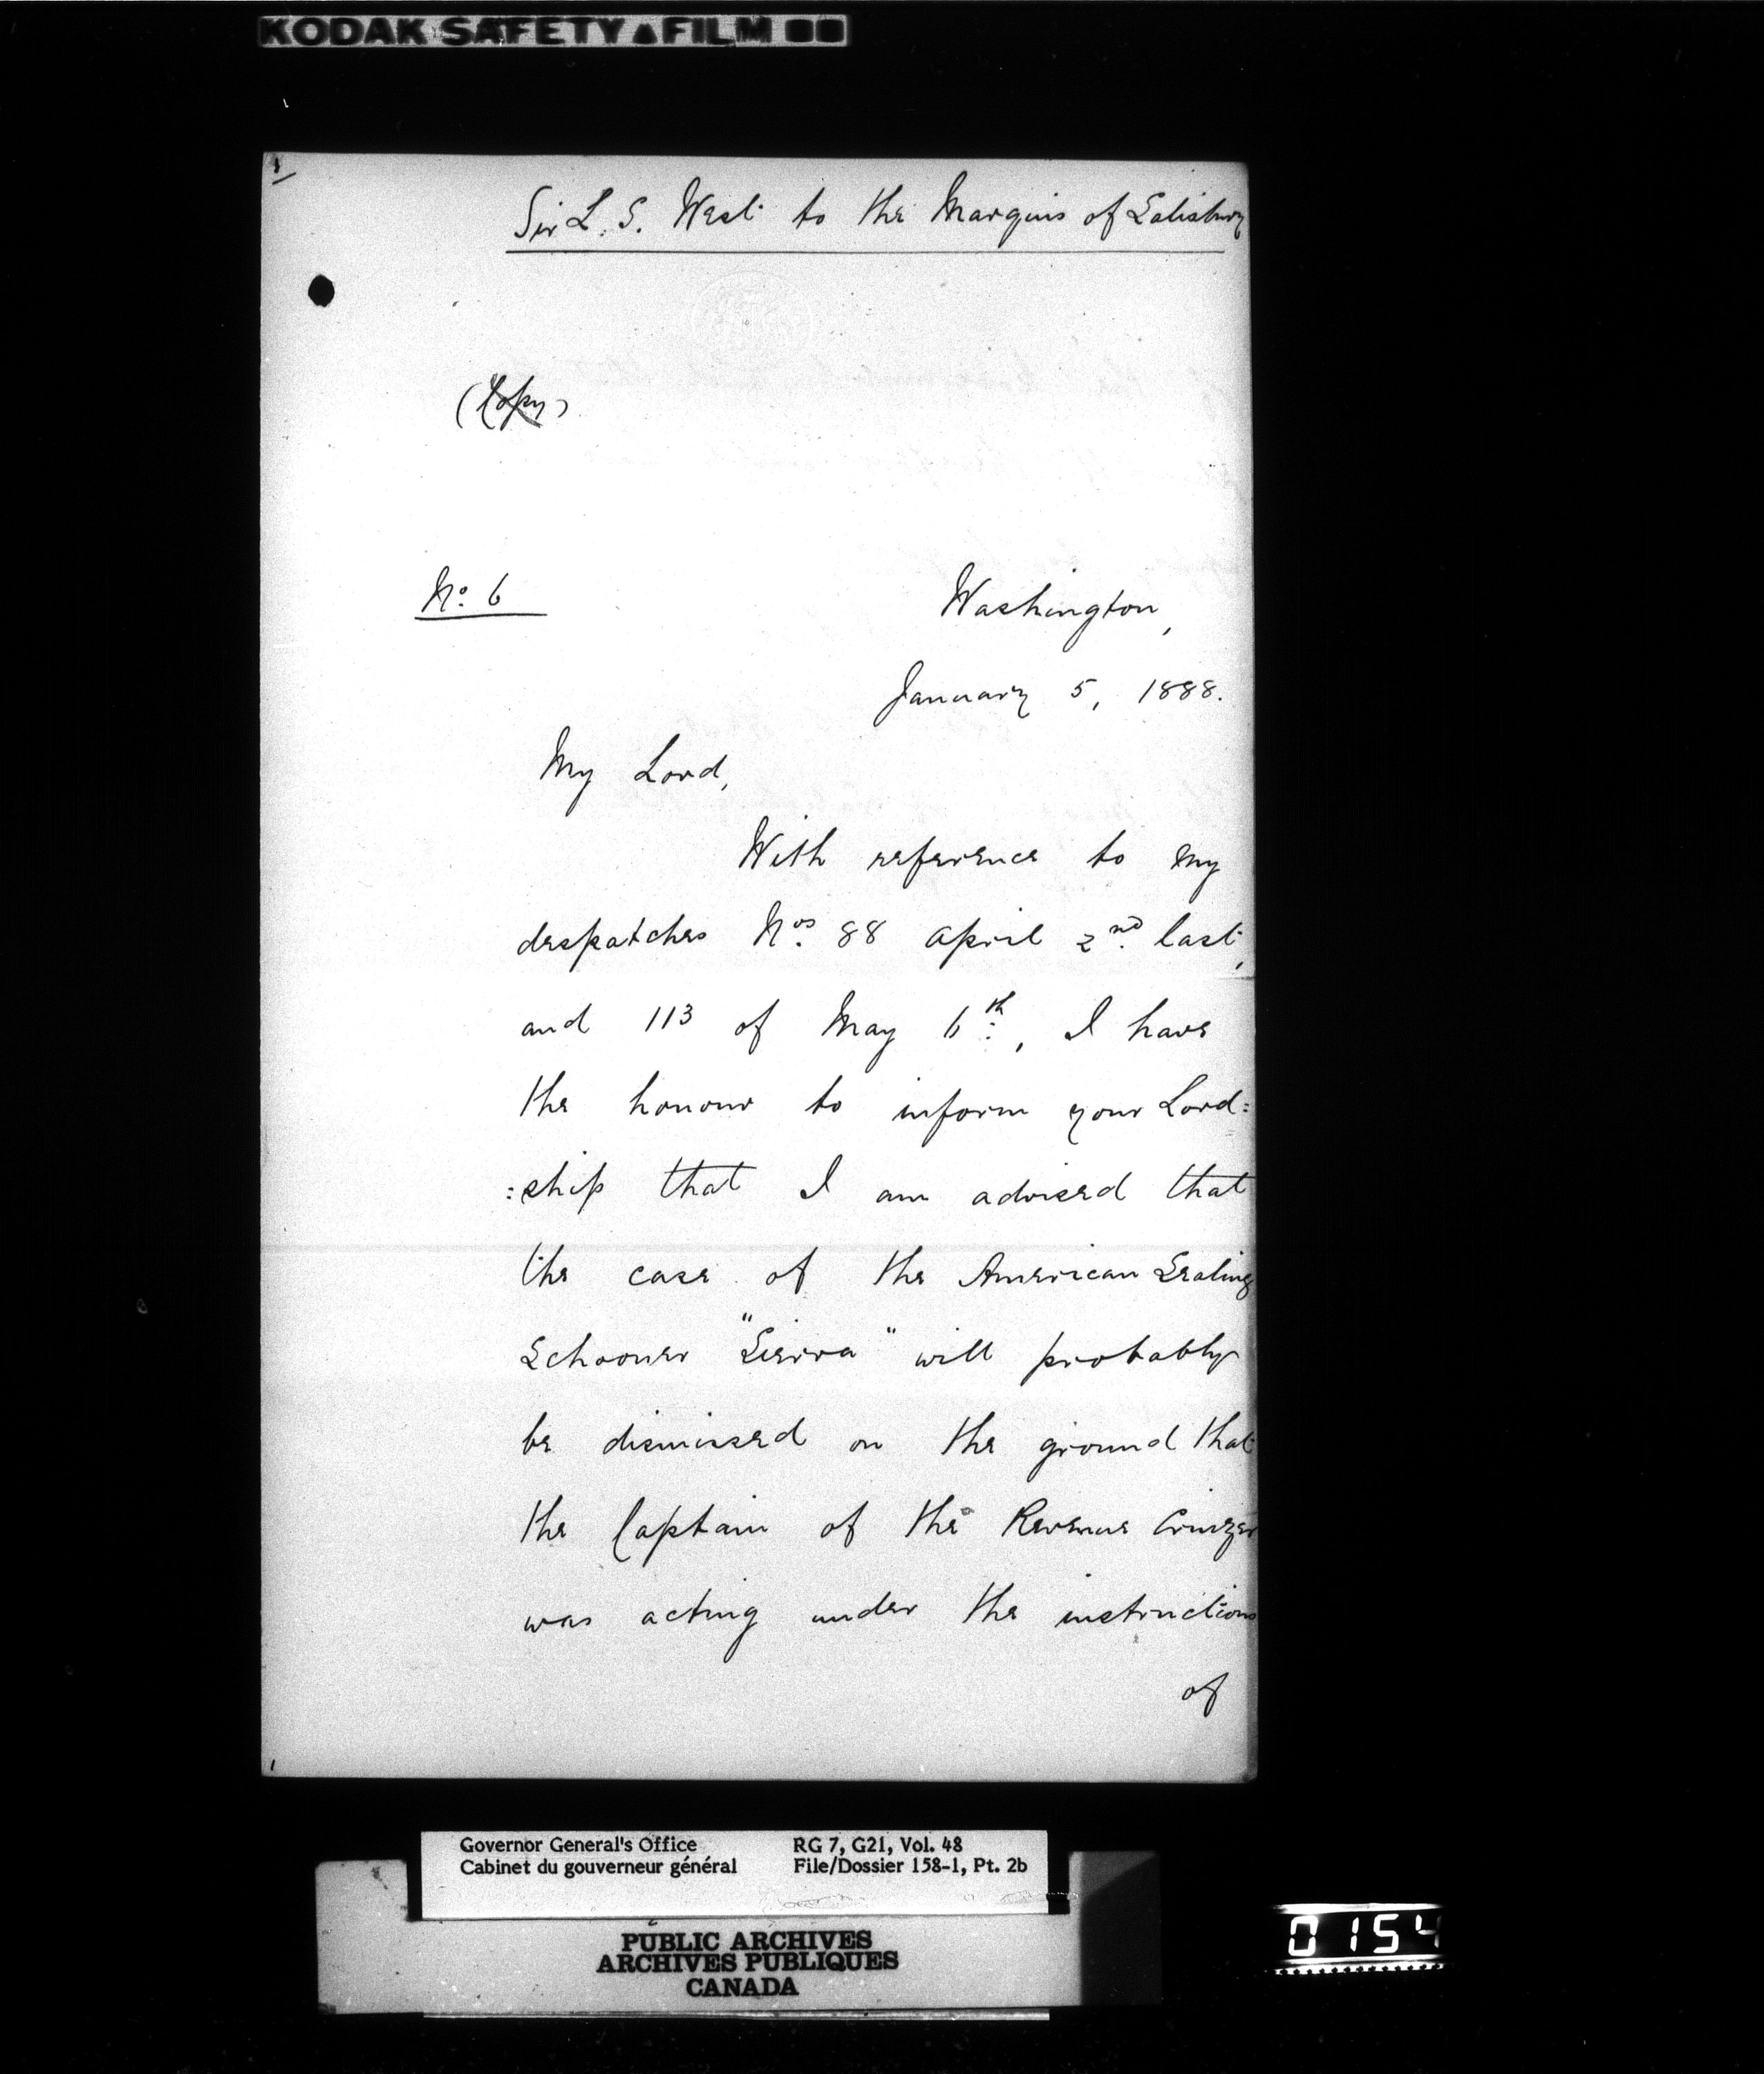 KODAK SAFETY FILM
Sir L. S. West to the Marquis of Salisbury
(Copy)
No. 6
Washington,
January 5, 1888.
My Lord,
With reference to my
despatches Nos. 88 April 2nd. last,
and 113 of May 6th:, I have
the honour to inform your Lord:
:ship that I am advised that
the case of the American Sealing
Schooner "Sierra" will probably
be dismissed on the ground that
the Captain of the Revenue Cruizer
was acting under the instructions
of
Governor General's Office
Cabinet du gouverneur général
RG 7, G21, Vol. 48
File/Dossier 158-1, Pt. 2b
PUBLIC ARCHIVES
ARCHIVES PUBLIQUES
CANADA
0154